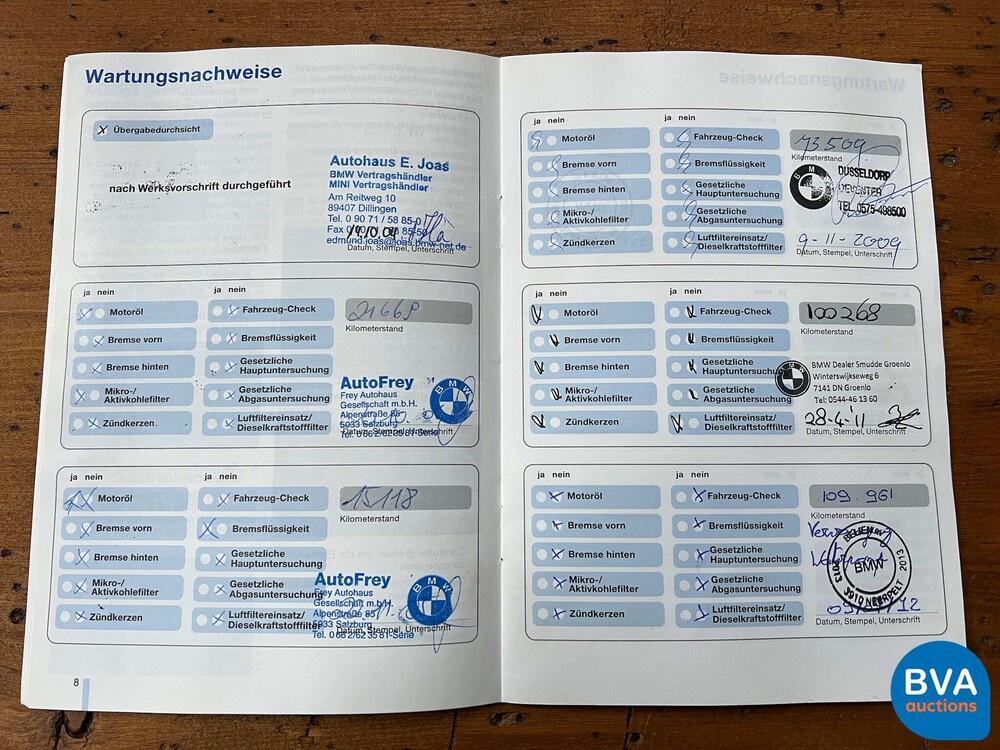 Wartungsnachweise
X Übergabedurchsicht
nach Werksvorschrift durchgeführt
Autohaus E. Joas
BMW Vertragshändler
MINI Vertragshändler
Am Reitweg 10
89407 Dillingen
Tel. 0 90 71 / 58 85-0
edmund.joas@joas.bmw-net.de
Datum, Stempel, Unterschrift
ja nein
ja nein
Motoröl
Fahrzeug-Check
Kilometerstand
Bremse vorn
Bremsflüssigkeit
Bremse hinten
Gesetzliche
Hauptuntersuchung
Mikro-/
Aktivkohlefilter
Gesetzliche
Abgasuntersuchung
Zündkerzen
Luftfiltereinsatz/
Dieselkraftstofffilter
AutoFrey
Frey Autohaus
Gesellschaft m.b.H.
Alpenstraße 85
5033 Salzburg
BMW
Datum, Stempel, Unterschrift
ja nein
ja nein
Motoröl
Fahrzeug-Check
15118
Kilometerstand
Bremse vorn
Bremsflüssigkeit
Bremse hinten
Gesetzliche
Hauptuntersuchung
Mikro-/
Aktivkohlefilter
Gesetzliche
Abgasuntersuchung
Zündkerzen
Luftfiltereinsatz/
Dieselkraftstofffilter
AutoFrey
Frey Autohaus
Gesellschaft m.b.H.
Alpenstraße 85
5033 Salzburg
Tel. 0 66 2/62 35 81-Serie
BMW
Datum, Stempel, Unterschrift
8
ja nein
ja nein
Motoröl
Fahrzeug-Check
73509
Kilometerstand
Bremse vorn
Bremsflüssigkeit
Bremse hinten
Gesetzliche
Hauptuntersuchung
Mikro-/
Aktivkohlefilter
Gesetzliche
Abgasuntersuchung
Zündkerzen
Luftfiltereinsatz/
Dieselkraftstofffilter
BMW
DUSSELDORP
DEVENTER
TEL. 0575-498500
9-11-2009
Datum, Stempel, Unterschrift
ja nein
ja nein
Motoröl
Fahrzeug-Check
100268
Kilometerstand
Bremse vorn
Bremsflüssigkeit
Bremse hinten
Gesetzliche
Hauptuntersuchung
Mikro-/
Aktivkohlefilter
Gesetzliche
Abgasuntersuchung
Zündkerzen
Luftfiltereinsatz/
Dieselkraftstofffilter
BMW Dealer Smudde Groenlo
Winterswijkseweg 6
7141 DN Groenlo
Tel: 0544-46 13 60
28-4-'11
Datum, Stempel, Unterschrift
ja nein
ja nein
Motoröl
Fahrzeug-Check
109.961
Kilometerstand
Bremse vorn
Bremsflüssigkeit
Bremse hinten
Gesetzliche
Hauptuntersuchung
Mikro-/
Aktivkohlefilter
Gesetzliche
Abgasuntersuchung
Zündkerzen
Luftfiltereinsatz/
Dieselkraftstofffilter
BMW
Datum, Stempel, Unterschrift
BVA
auctions